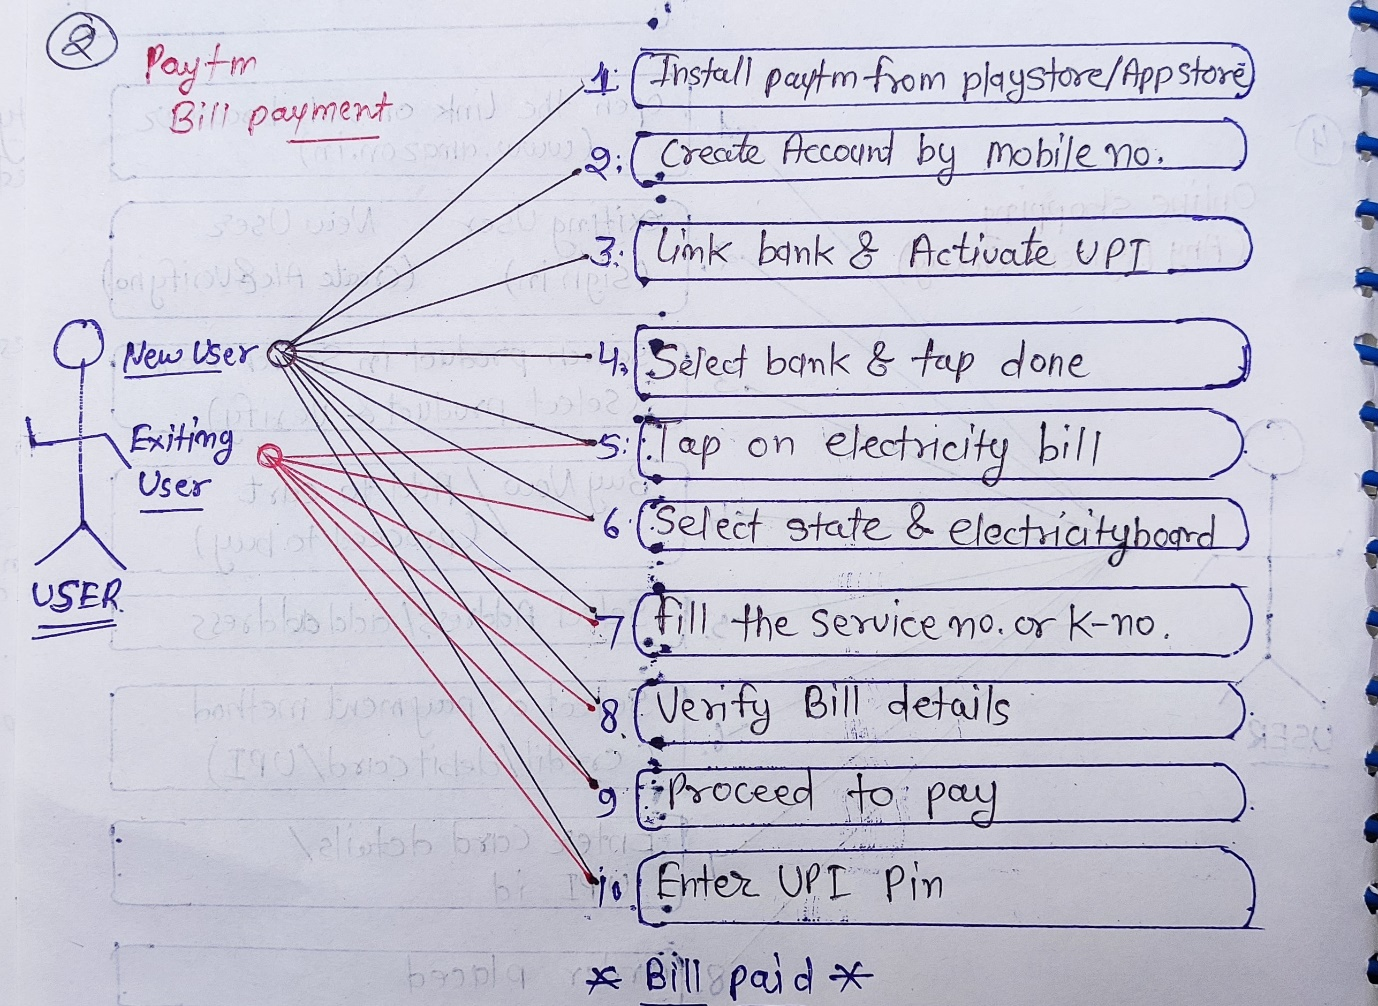 2
Paytm
Bill payment
1: Install paytm from playstore/App store
2: Create Account by mobile no.
3: Link bank & Activate UPI
New User
4. Select bank & tap done
Exiting
User
5: Tap on electricity bill
6. Select state & electricityboard
USER
7 fill the service no. or K-no.
8. Verify Bill details
9 Proceed to pay
10 Enter UPI Pin
* Bill paid *